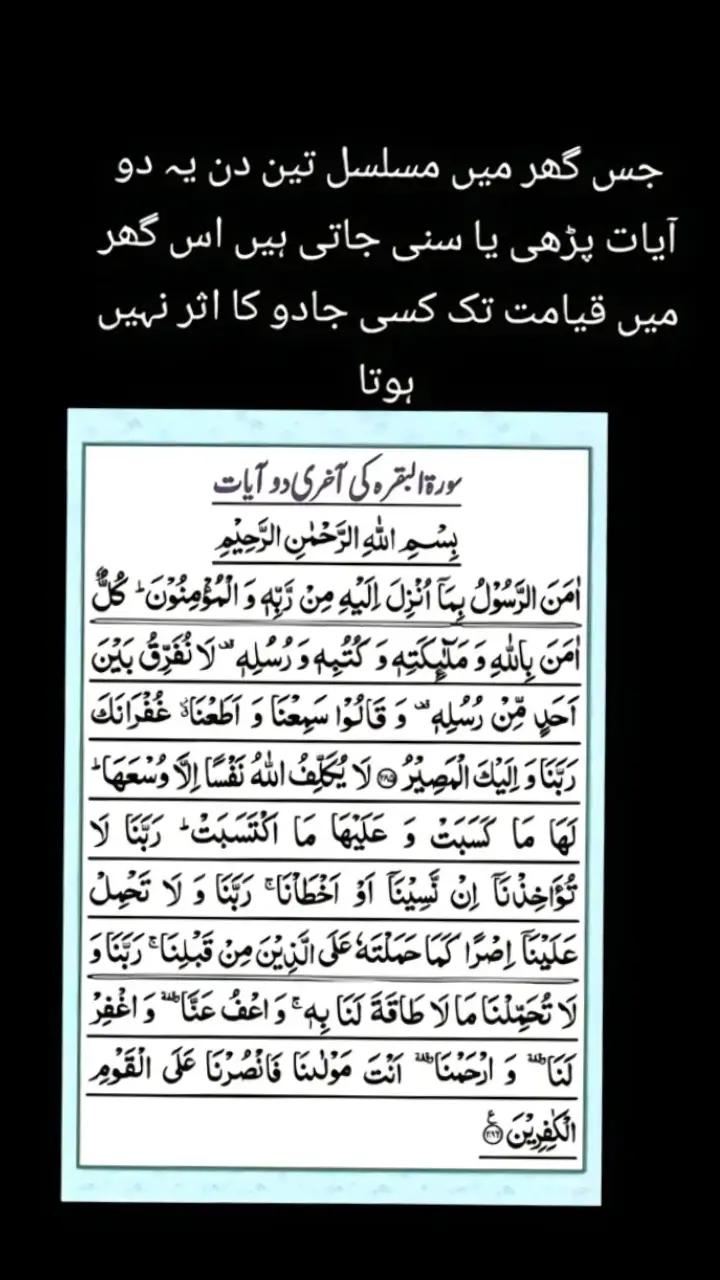 جس گھر میں مسلسل تین دن یہ دو
آیات پڑھی یا سنی جاتی ہیں اس گھر
میں قیامت تک کسی جادو کا اثر نہیں
ہوتا
سورۃ البقرہ کی آخری دو آیات
بِسْمِ اللهِ الرَّحْمٰنِ الرَّحِيْمِ
اٰمَنَ الرَّسُوْلُ بِمَاۤ اُنْزِلَ اِلَيْهِ مِنْ رَّبِّهٖ وَ الْمُؤْمِنُوْنَ ؕ كُلٌّ
اٰمَنَ بِاللهِ وَ مَلٰٓىِٕكَتِهٖ وَ كُتُبِهٖ وَ رُسُلِهٖ ۫ لَا نُفَرِّقُ بَيْنَ
اَحَدٍ مِّنْ رُّسُلِهٖ ۫ وَ قَالُوْا سَمِعْنَا وَ اَطَعْنَا ۗ٘ غُفْرَانَكَ
رَبَّنَا وَ اِلَيْكَ الْمَصِيْرُ ﴿۲۸۵﴾ لَا يُكَلِّفُ اللهُ نَفْسًا اِلَّا وُسْعَهَا ؕ
لَهَا مَا كَسَبَتْ وَ عَلَيْهَا مَا اكْتَسَبَتْ ؕ رَبَّنَا لَا
تُؤَاخِذْنَاۤ اِنْ نَّسِيْنَاۤ اَوْ اَخْطَاْنَا ۚ رَبَّنَا وَ لَا تَحْمِلْ
عَلَيْنَاۤ اِصْرًا كَمَا حَمَلْتَهٗ عَلَى الَّذِيْنَ مِنْ قَبْلِنَا ۚ رَبَّنَا وَ
لَا تُحَمِّلْنَا مَا لَا طَاقَةَ لَنَا بِهٖ ۚ وَ اعْفُ عَنَّا ۥ وَ اغْفِرْ
لَنَا ۥ وَ ارْحَمْنَا ۥ اَنْتَ مَوْلٰىنَا فَانْصُرْنَا عَلَى الْقَوْمِ
الْكٰفِرِيْنَ ﴿۲۸۶﴾